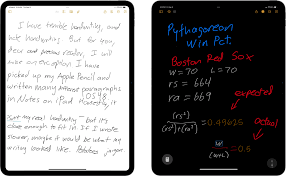 I have terrible handwriting, and
hate handwriting. But for you,
dear reader, I will
make an exception. I have
picked up my Apple Pencil and
written many paragraphs
in Notes on iPad. Honestly, it
my real handwriting - but it's
close enough to it. If I wrote
slower, maybe it would be what my
writing looked like.
Pythagorean
Win Pct.
Boston Red Sox
W = 70 L = 70
rs = 664
ra = 669
expected
(rs²)
(rs²)+(ra²)
= 0.49625
actual
w
(w+L)
= 0.5